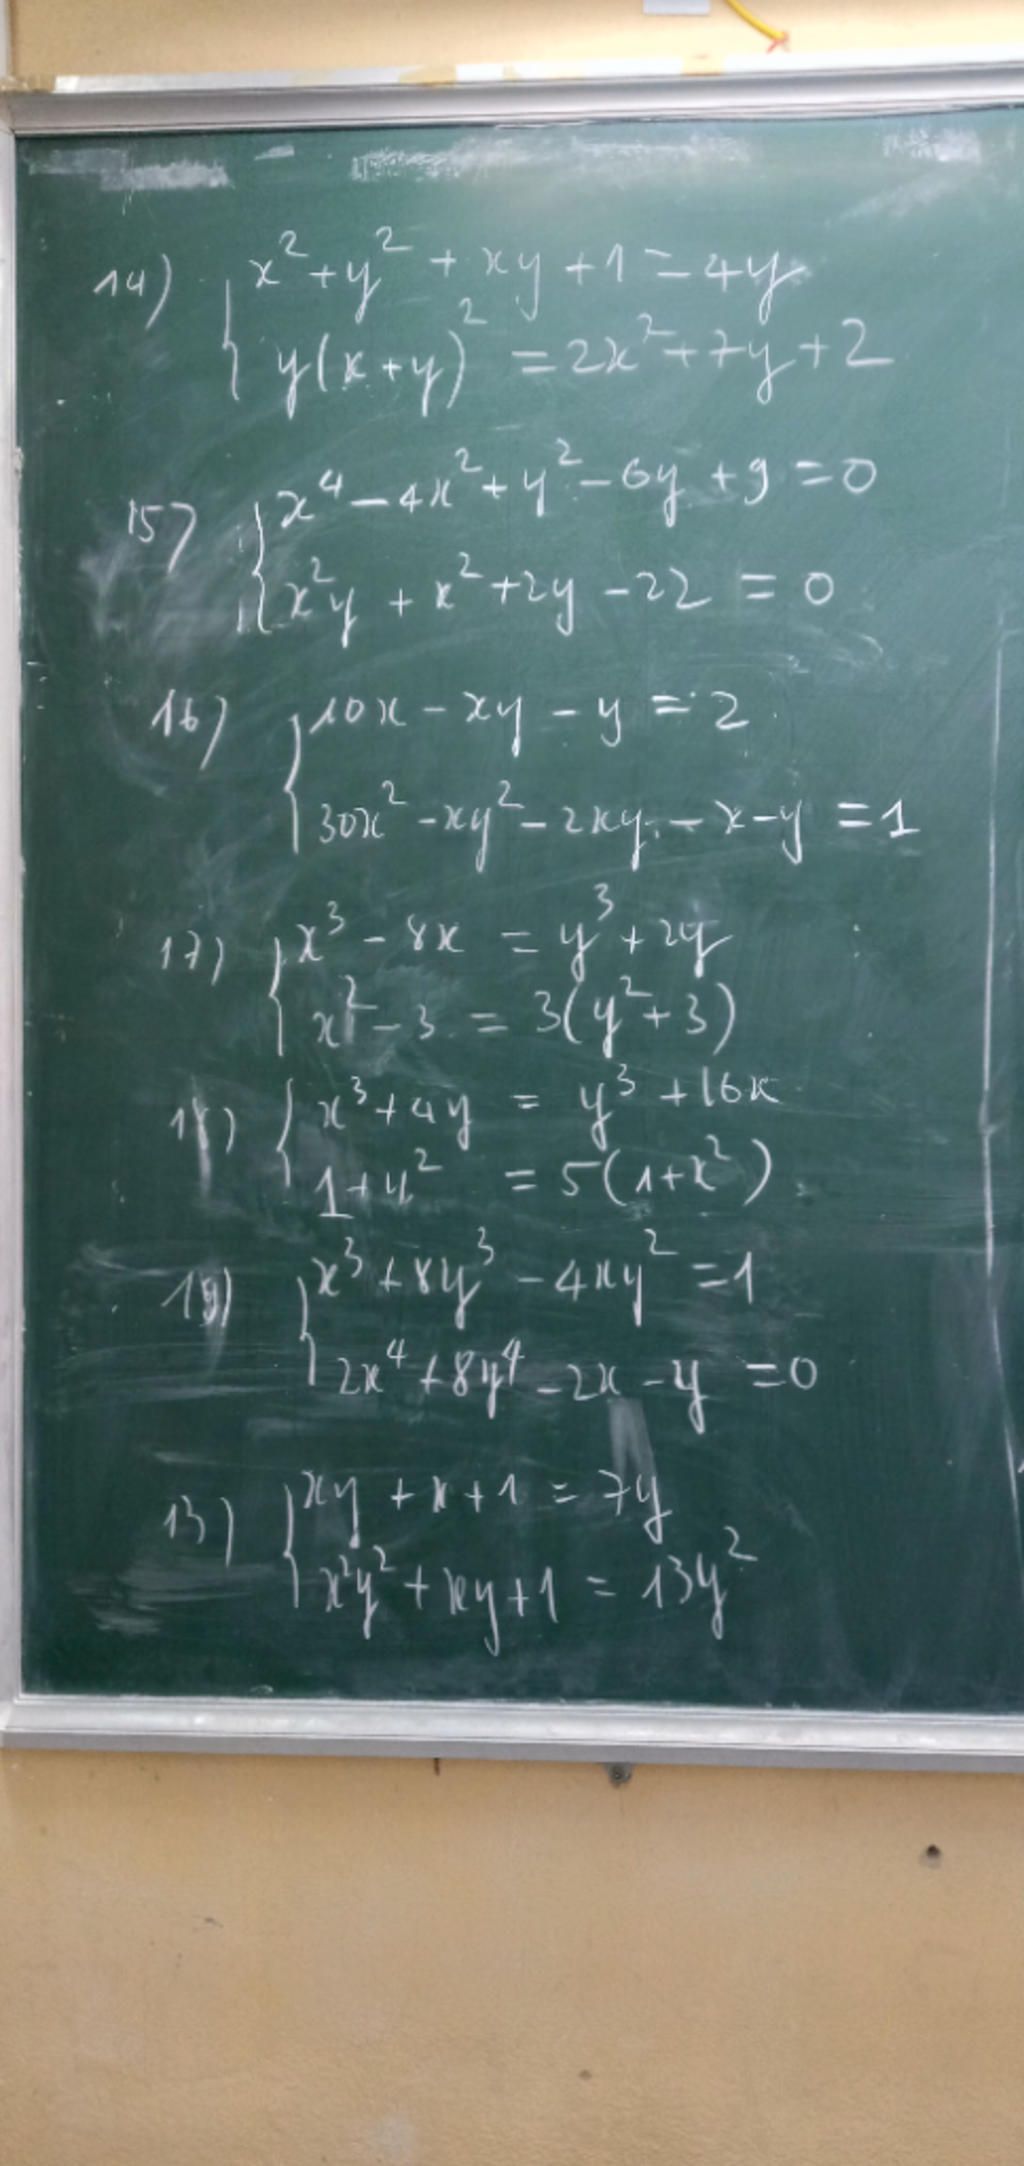 14) { x² + y² + xy + 1 = 4y
y(x+y)² = 2x² + 7y + 2
15) { x⁴ - 4x² + y² - 6y + 9 = 0
x²y + x² + 2y - 22 = 0
16) { 10x - xy - y = 2
30x² - xy² - 2xy - x - y = 1
17) { x³ - 8x = y³ + 2y
x² - 3 = 3(y² + 3)
18) { x³ + 4y = y³ + 16x
1 + y² = 5(1 + x²)
19) { x³ + 8y³ - 4xy² = 1
2x⁴ + 8y⁴ - 2x - y = 0
13) { xy + x + 1 = 7y
x²y² + xy + 1 = 13y²